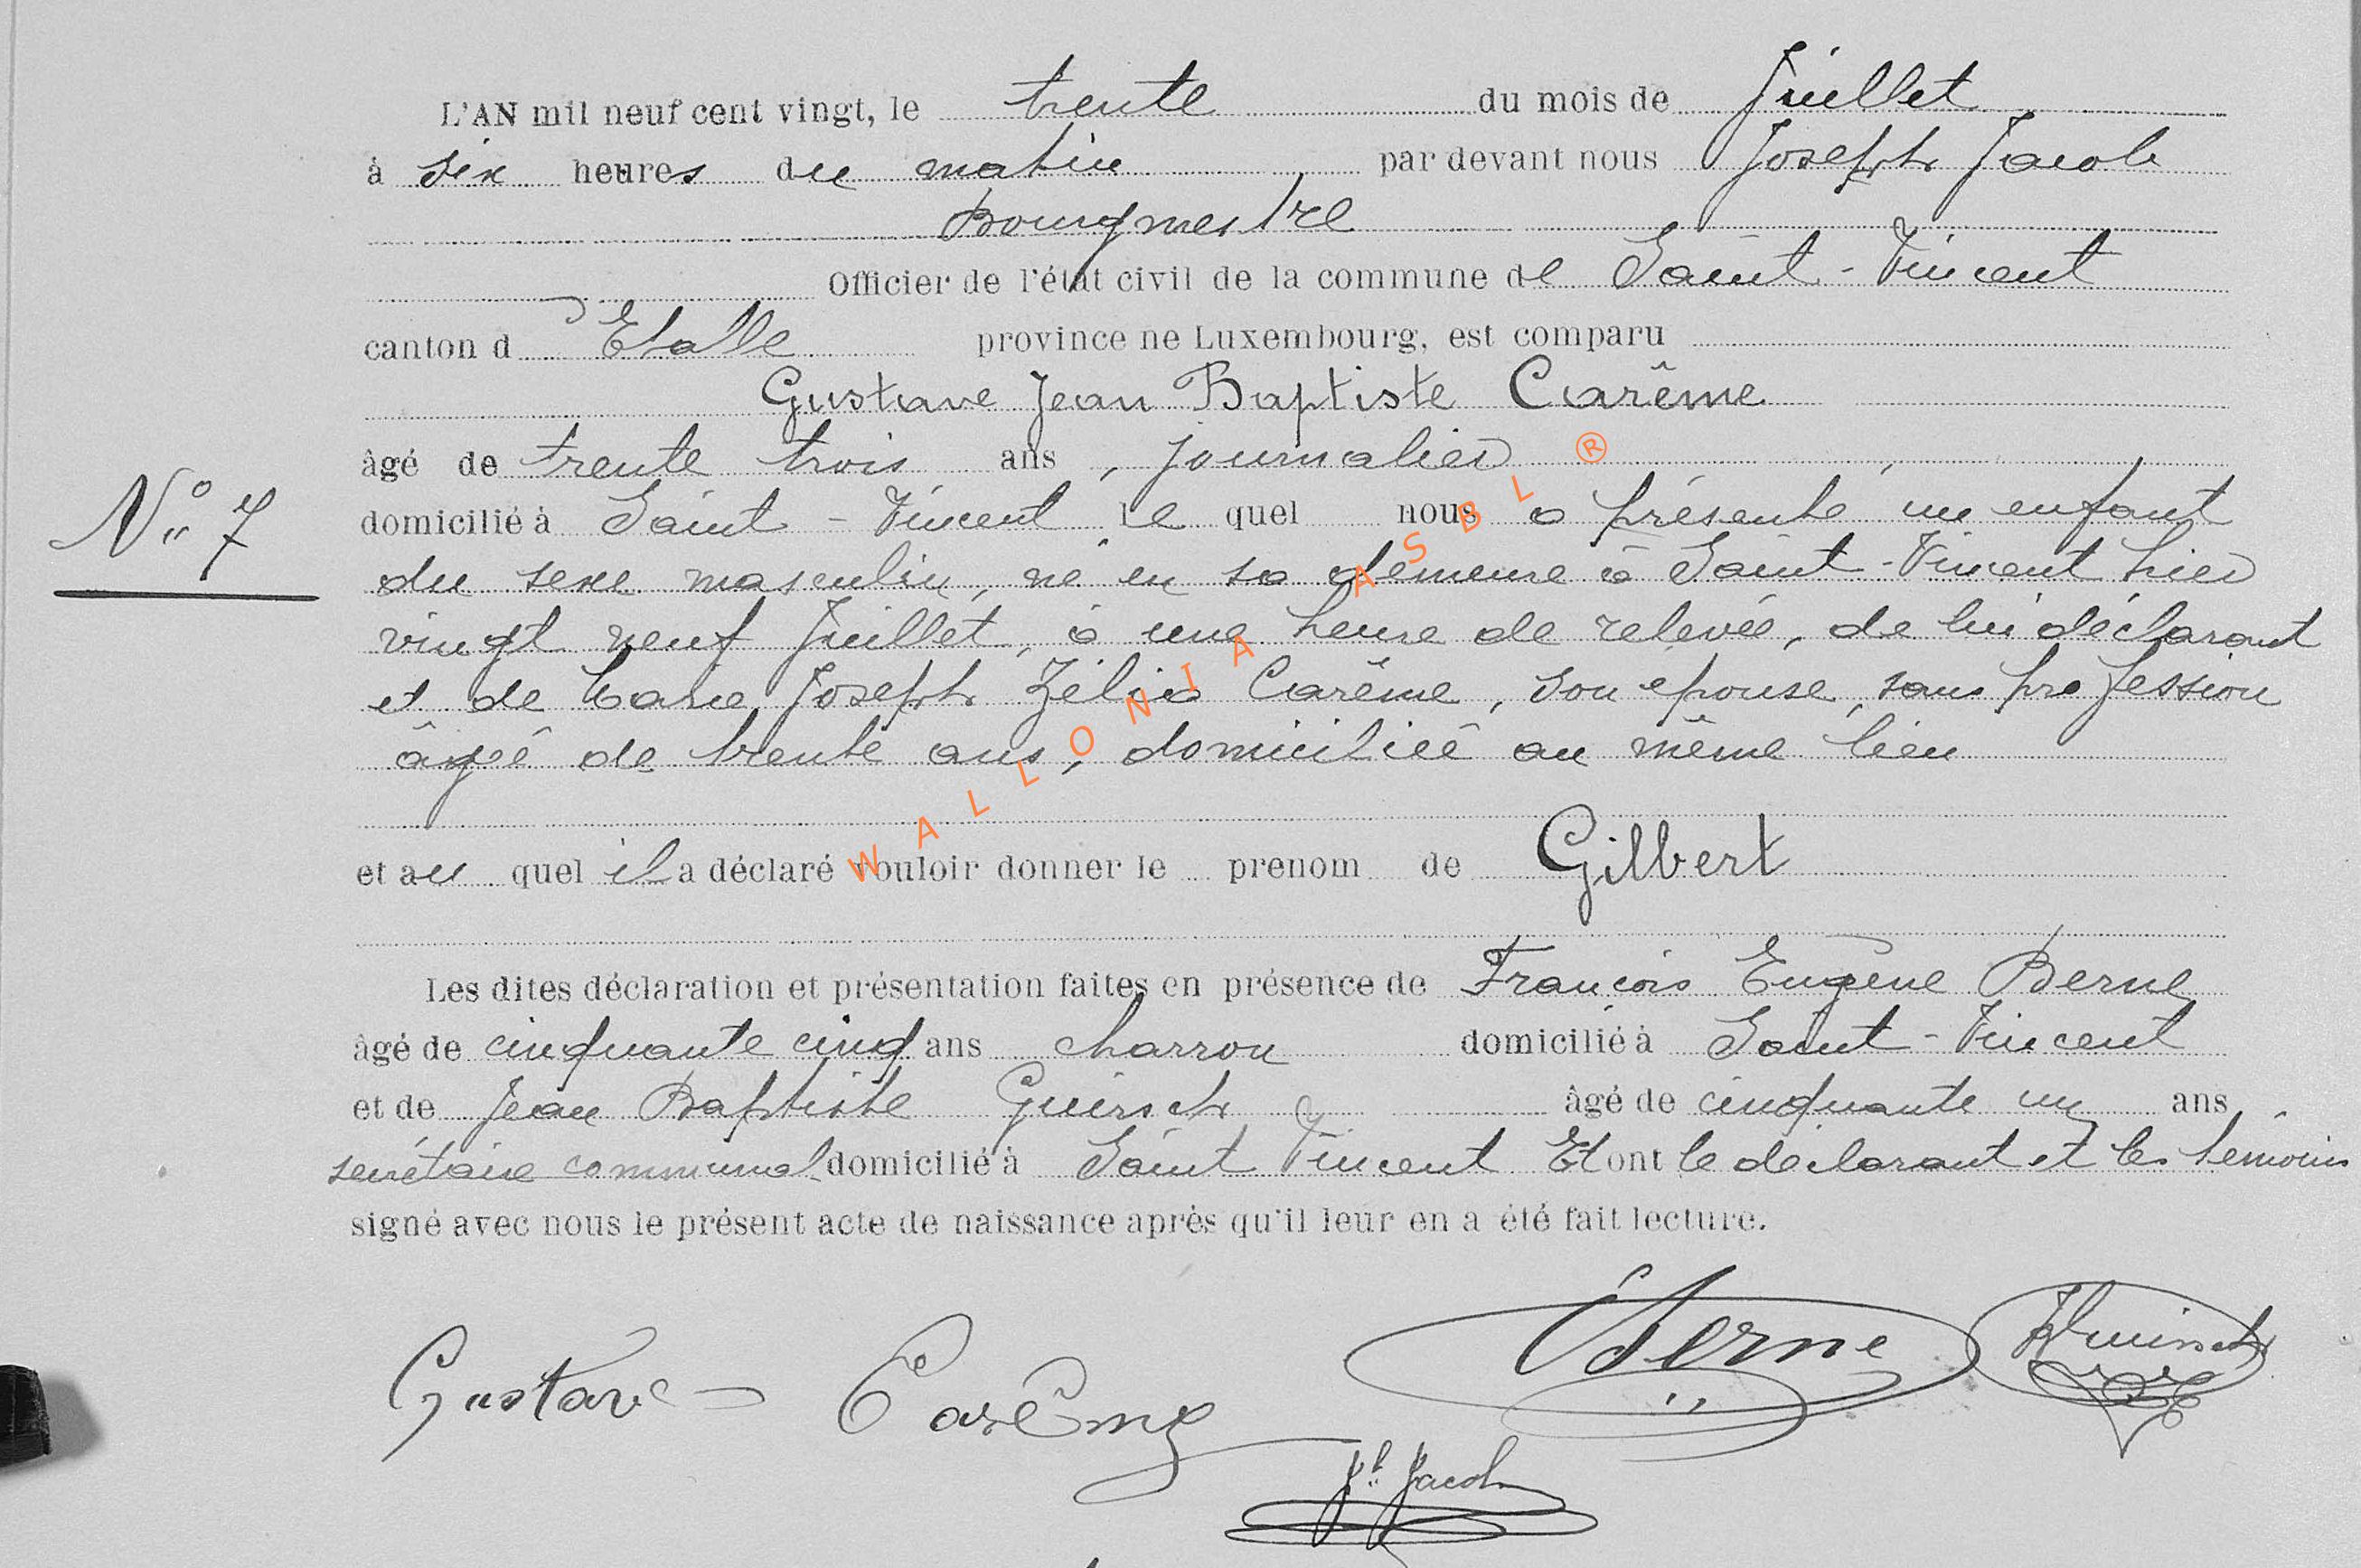 L'AN mil neuf cent vingt, le trente du mois de Juillet
à six heures du matin par devant nous Joseph Jacob
Bourgmestre
Officier de l'état civil de la commune de Saint-Vincent
canton d'Etalle province ne Luxembourg, est comparu
Gustave Jean Baptiste Carême
âgé de trente trois ans, journalier
N° 7
domicilié à Saint-Vincent le quel nous a présenté un enfant
du sexe masculin, né en sa demeure à Saint-Vincent hier
vingt neuf Juillet, à une heure de relevée, de lui déclarant
et de Marie Joseph Zélia Carême, son épouse, sans profession
âgée de trente ans, domiciliée au même lieu
et au quel il a déclaré vouloir donner le prenom de Gilbert
Les dites déclaration et présentation faites en présence de François Eugène Berne
âgé de cinquante cinq ans charron domicilié à Saint-Vincent
et de Jean Baptiste Guirsch âgé de cinquante un ans
secrétaire communal domicilié à Saint Vincent Et ont le déclarant et les témoins
signé avec nous le présent acte de naissance après qu'il leur en a été fait lecture.
Gustave Carême EBerne Guirsch
Jh Jacob
WALLONIA ASBL ®